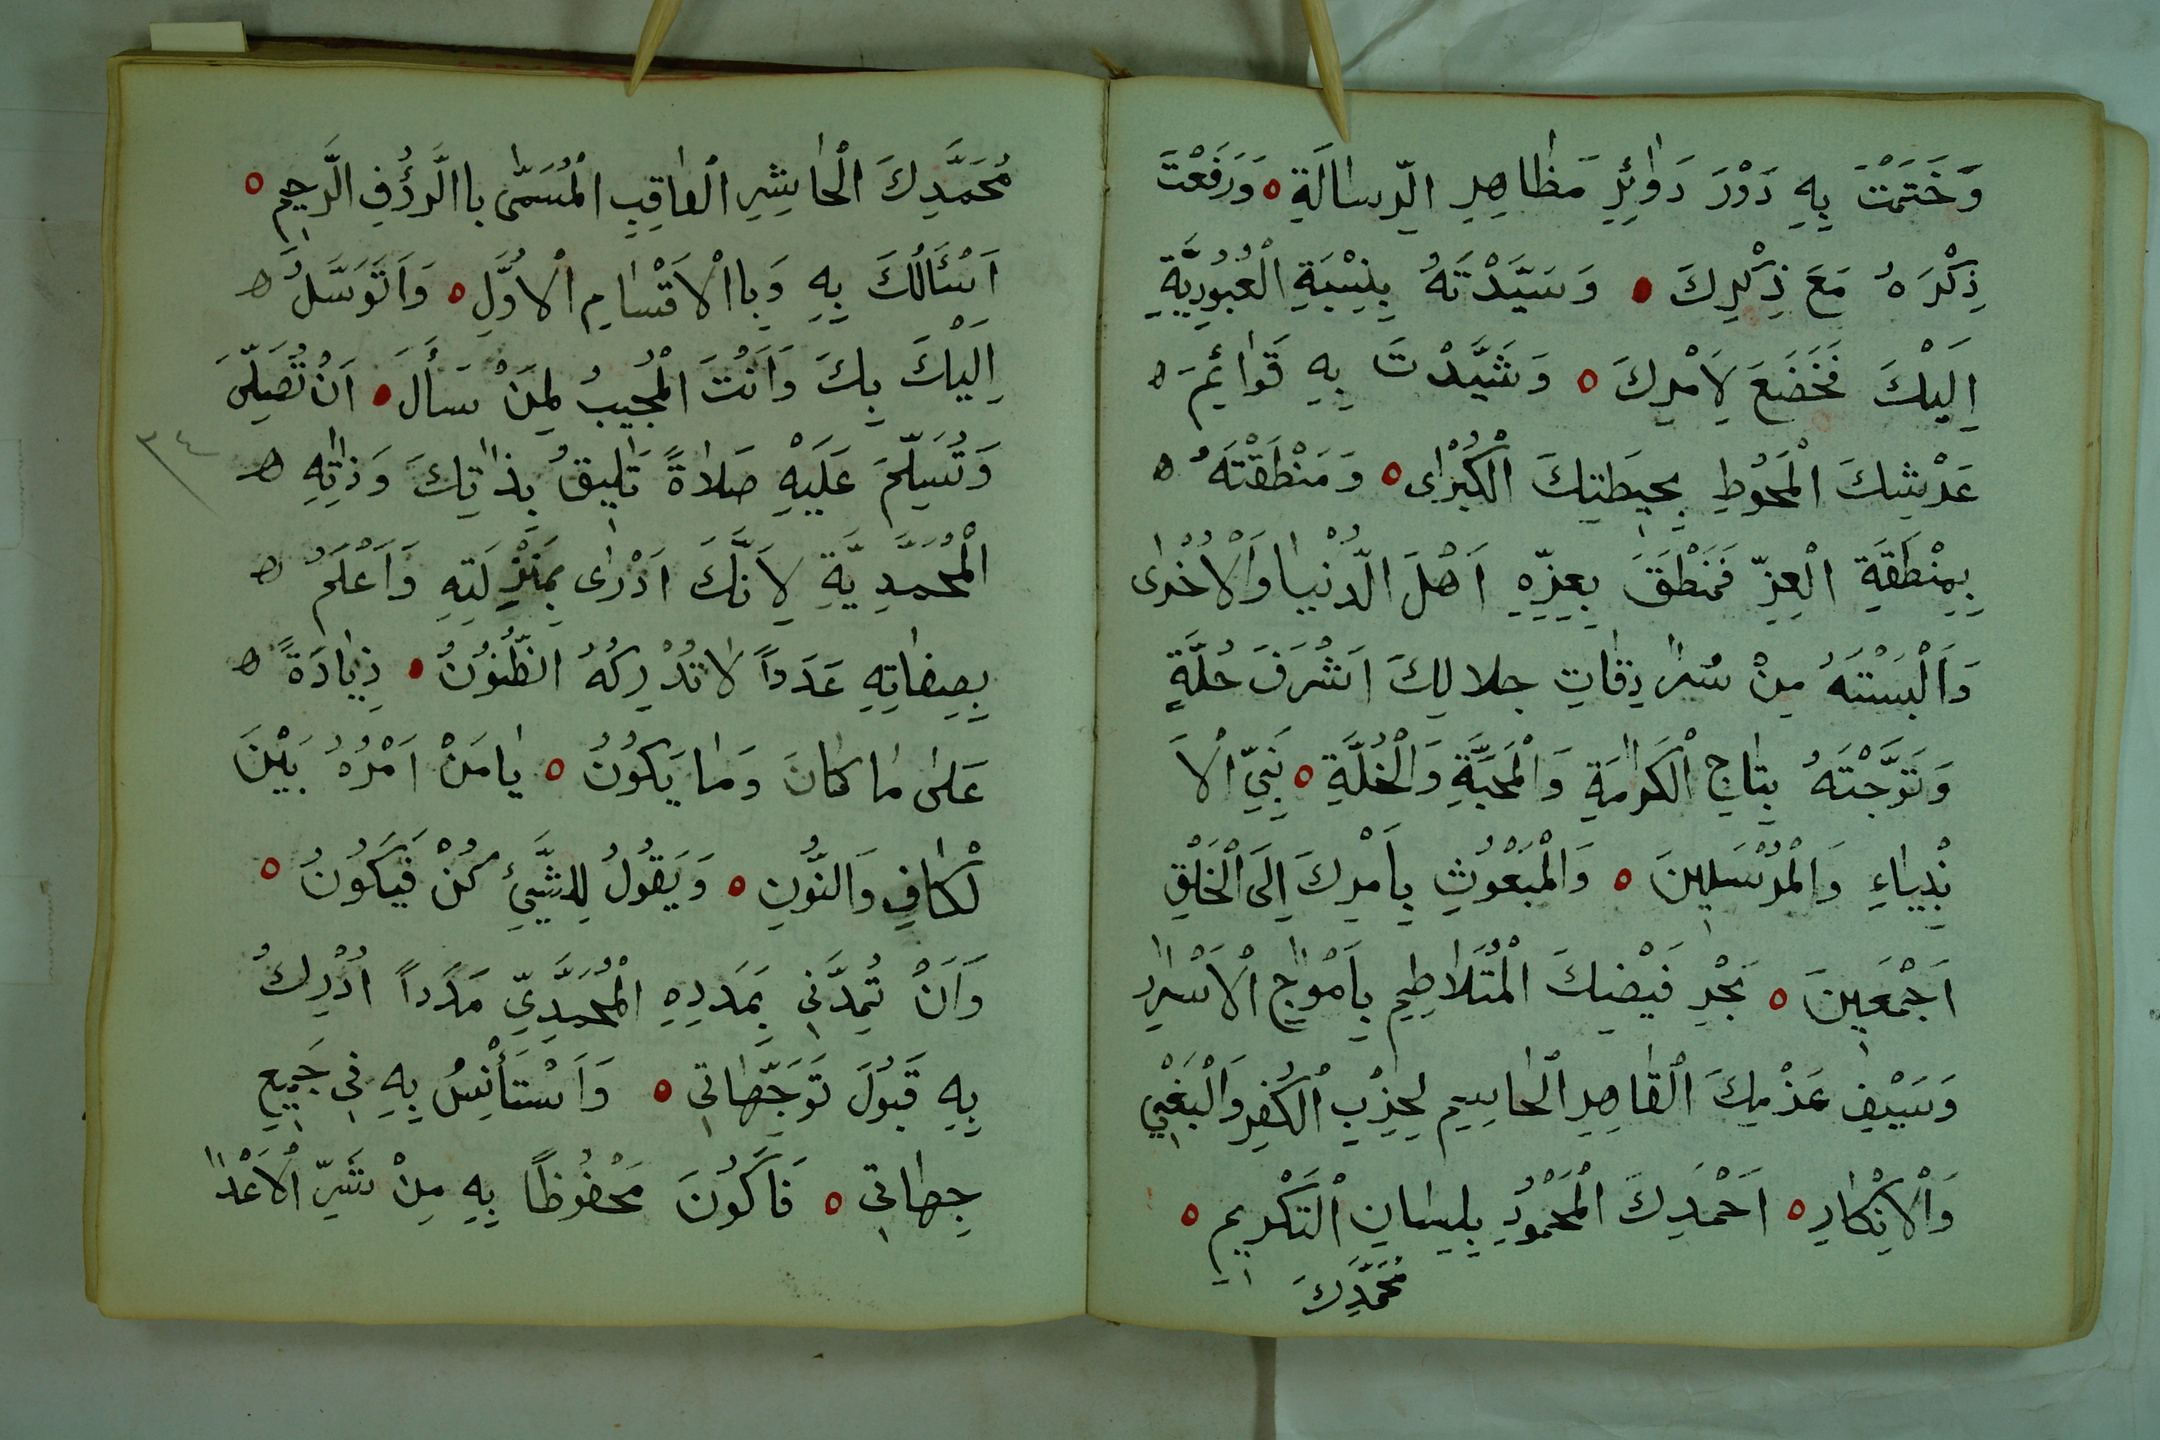 وَخَتَمْتَ بِهِ دَوْرَ دَوٰائِرِ مَظٰاهِرِ الرِّسٰالَةِ ه وَرَفَعْتَ
ذِكْرَهُ مَعَ ذِكْرِكَ ه وَسَيَّدْتَهُ بِنِسْبَةِ الْعُبُودِيَّةِ
اِلَيْكَ فَخَضَعَ لِاَمْرِكَ ه وَشَيَّدْتَ بِهِ قَوٰائِمَ ه
عَرْشِكَ الْمَحُوطِ بِحِيطَتِكَ الْكُبْرٰى ه وَمَنْطَقْتَهُ ه
بِمِنْطَقَةِ الْعِزِّ فَمَنْطَقَ بِعِزِّهِ اَهْلَ الدُّنْيٰا وَالْاُخْرٰى
وَاَلْبَسْتَهُ مِنْ سُرٰادِقٰاتِ جلالِكَ اَشْرَفَ حُلَّةٍ
وَتَوَّجْتَهُ بِتٰاجِ الْكَرٰامَةِ وَالْمَحَبَّةِ وَالْخُلَّةِ ه نَبِيِّ الْاَ
نْبِيٰاءِ وَالْمُرْسَلِينَ ه وَالْمَبْعُوثِ بِاَمْرِكَ اِلَى الْخَلْقِ
اَجْمَعِينَ ه بَحْرِ فَيْضِكَ الْمُتَلَاطِمِ بِاَمْوٰاجِ الْاَسْرٰارِ
وَسَيْفِ عَزْمِكَ الْقٰاهِرِ الْحٰاسِمِ لِحِزْبِ الْكُفْرِ وَالْبَغْيِ
وَالْاِنْكٰارِ ه اَحْمَدِكَ الْمَحْمُودِ بِلِسٰانِ الْتَكْرِيمِ ه
مُحَمَّدِكَ
مُحَمَّدِكَ الْحٰاشِرِ الْعٰاقِبِ الْمُسَمّٰى بٰاالرَّؤُفِ الرَّحِيمِ ه
اَسْئَالُكَ بِهِ وَبِاالْاَقْسٰامِ الْاُوَّلِ ه وَاَتَوَسَّلُ ه
اِلَيْكَ بِكَ وَاَنْتَ الْمُجِيبُ لِمَنْ سَأَلَ ه اَنْ تُصَلِّىَ
وَتُسَلِّمَ عَلَيْهِ صَلٰاةً تَلِيقُ بِذٰاتِكَ وَذٰاتِهِ ه
٣٤
الْمُحَمَّدِيَّةِ لِاَنَّكَ اَدْرٰى بِمَنْزِلَتِهِ وَاَعْلَمُ ه
بِصِفٰاتِهِ عَدَداً لٰا تُدْرِكُهُ الظُّنُونُ ه زِيٰادَةً ه
عَلٰى مٰا كٰانَ وَمٰا يَكُونُ ه يٰا مَنْ اَمْرُهُ بَيْنَ
لْكٰافِ وَالنُّونِ ه وَيَقُولُ لِلشَّيْئِ كُنْ فَيَكُونُ ه
وَاَنْ تُمِدَّنِي بِمَدَدِهِ الْمُحَمَّدِيِّ مَدَداً اُدْرِكُ
بِهِ قَبُولَ تَوَجُّهٰاتِي ه وَاَسْتَأْنِسُ بِهِ فِي جَمِيعِ
جِهٰاتِي ه فَاَكُونَ مَحْفُوظاً بِهِ مِنْ شَرِّ الْاَعْدٰا